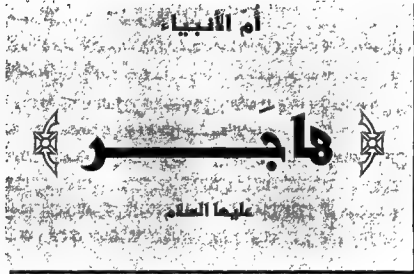 أم الأنبياء
هاجَر
عليها السلام